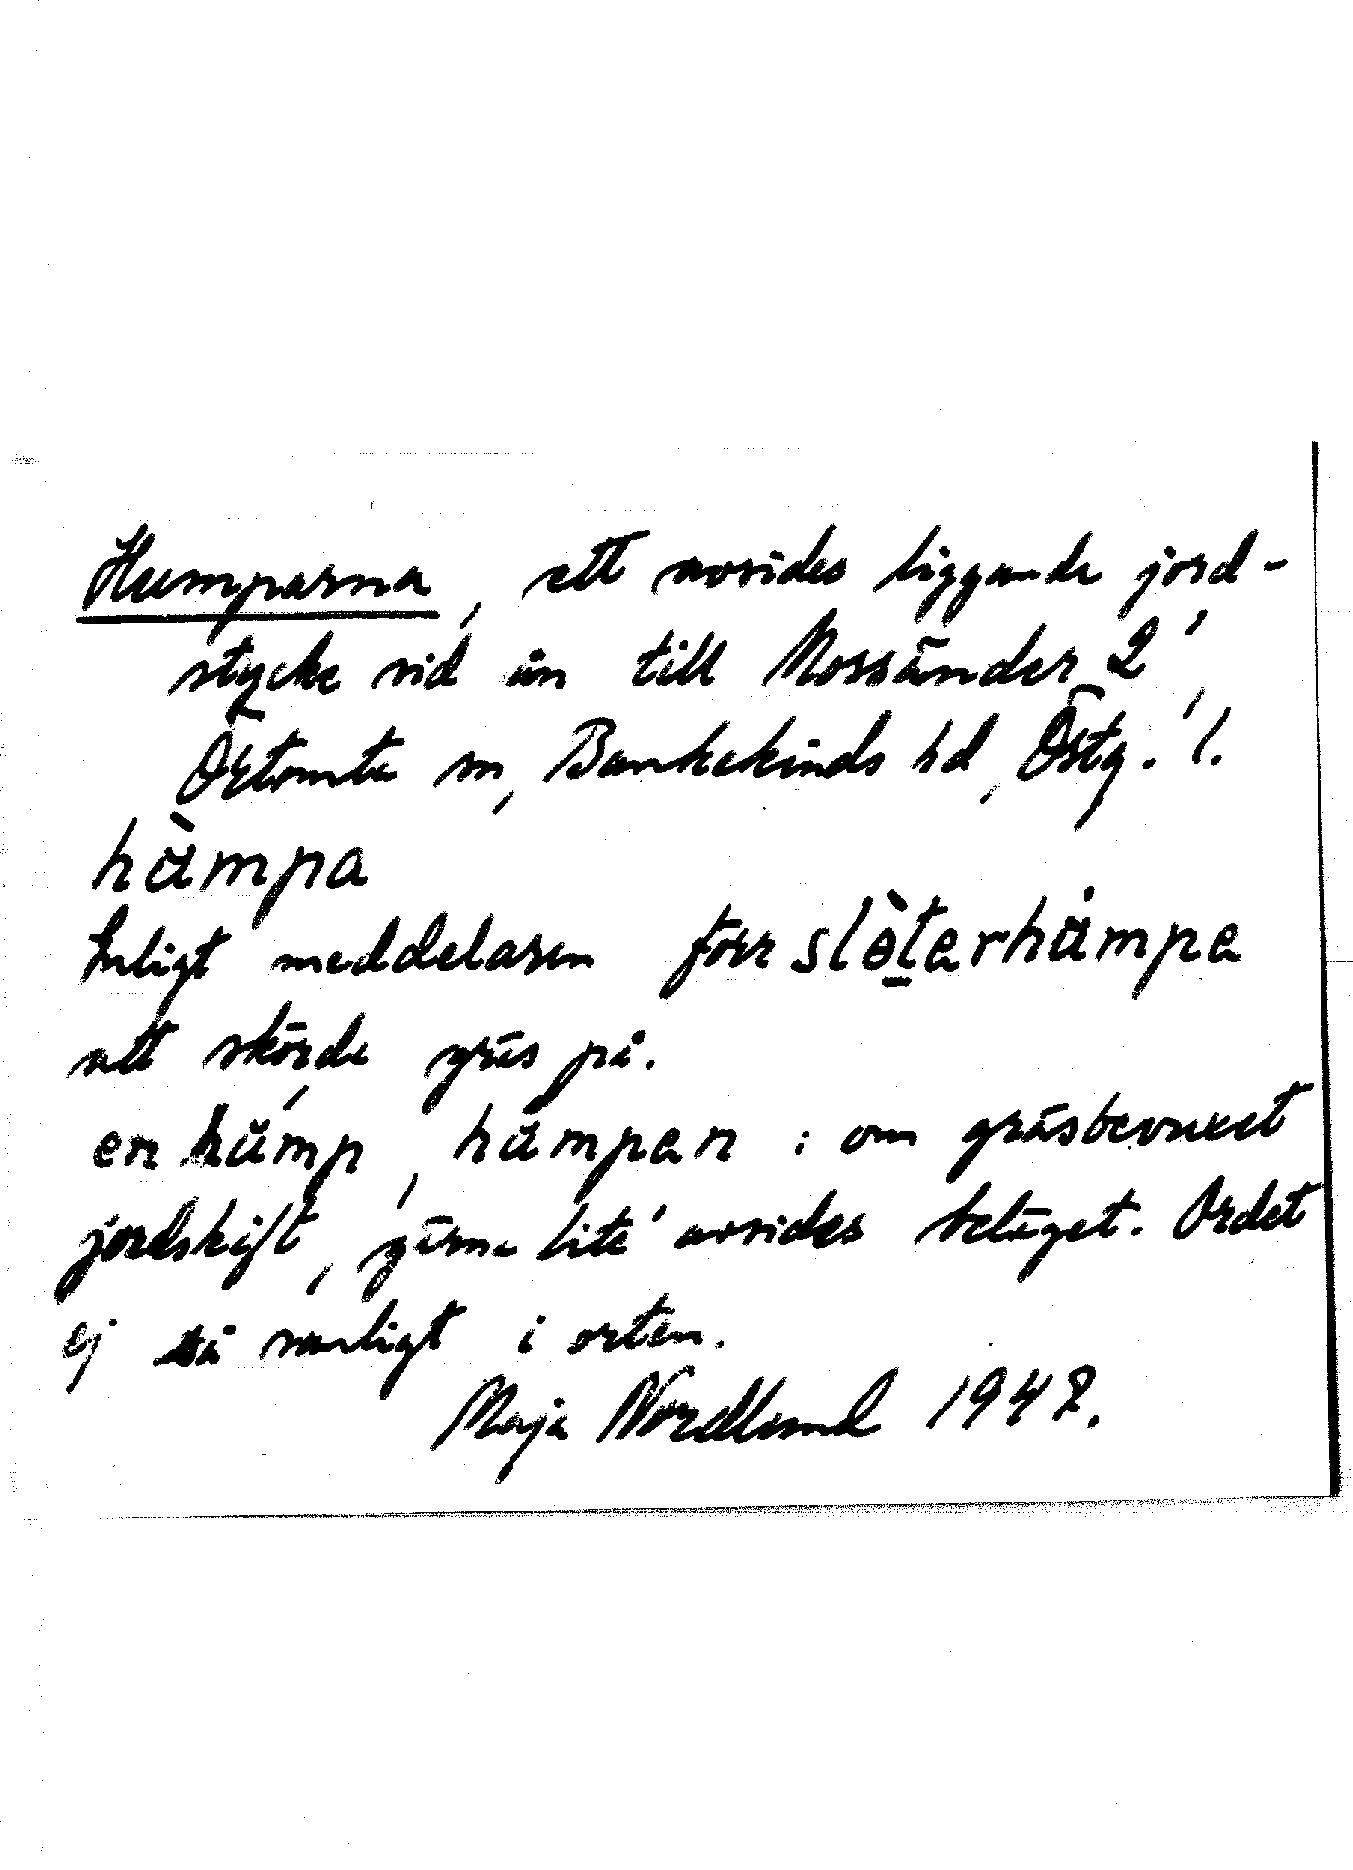 Humparna, ett avsides liggande jord-
stycke vid ån till Mossänder 2,
Örtomta sn, Bankekinds hd, Östg. l.
hàmpa
Enligt meddelaren förr slöterhåmpa
att skörda gräs på.
en håmp, håmpen : om gräsbevuxet
jordskift, gärna lite' avsides beläget. Ordet
ej så vanligt i orten.
Maja Nordlund 1947.